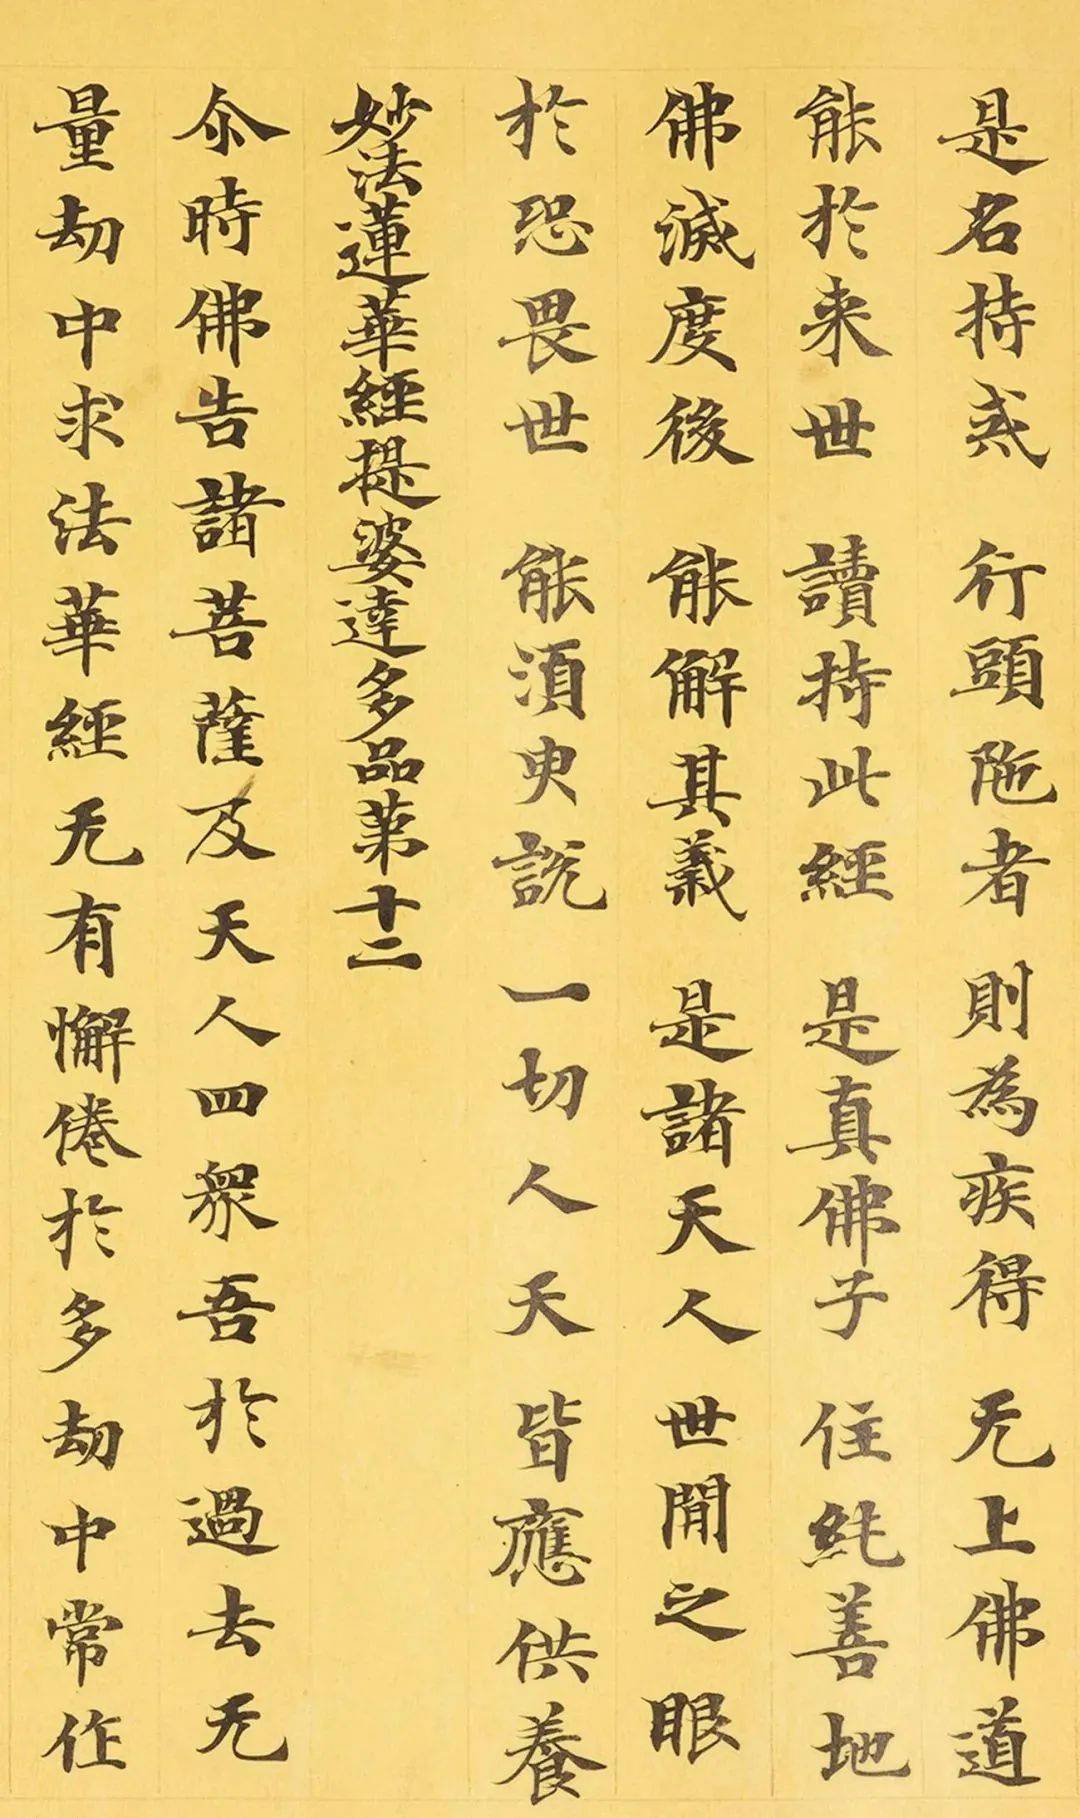 是名持戒 行頭陁者 則為疾得 无上佛道
能於来世 讀持此經 是真佛子 住純善地
佛滅度後 能解其義 是諸天人 世閒之眼
於恐畏世 能須臾說 一切人天 皆應供養
妙法蓮華經提婆達多品第十二
尒時佛告諸菩薩及天人四衆吾於過去无
量劫中求法華經无有懈倦於多劫中常作